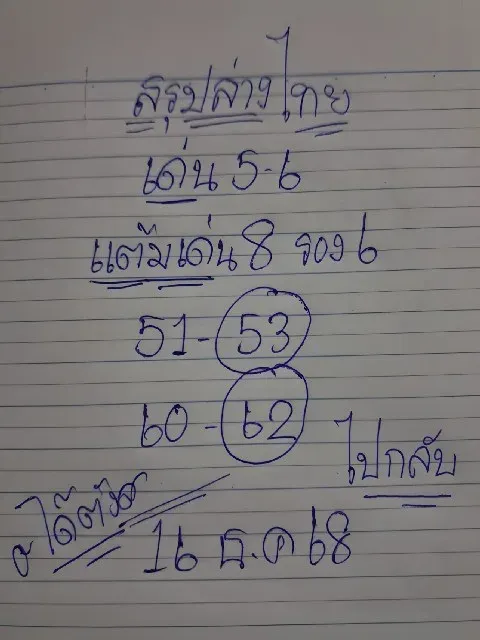 สรุปล่างไทย
เด่น 5-6
แต้มเด่น 8 รอง 6
51-53
60-62
ไปกลับ
16 ธ.ค 68